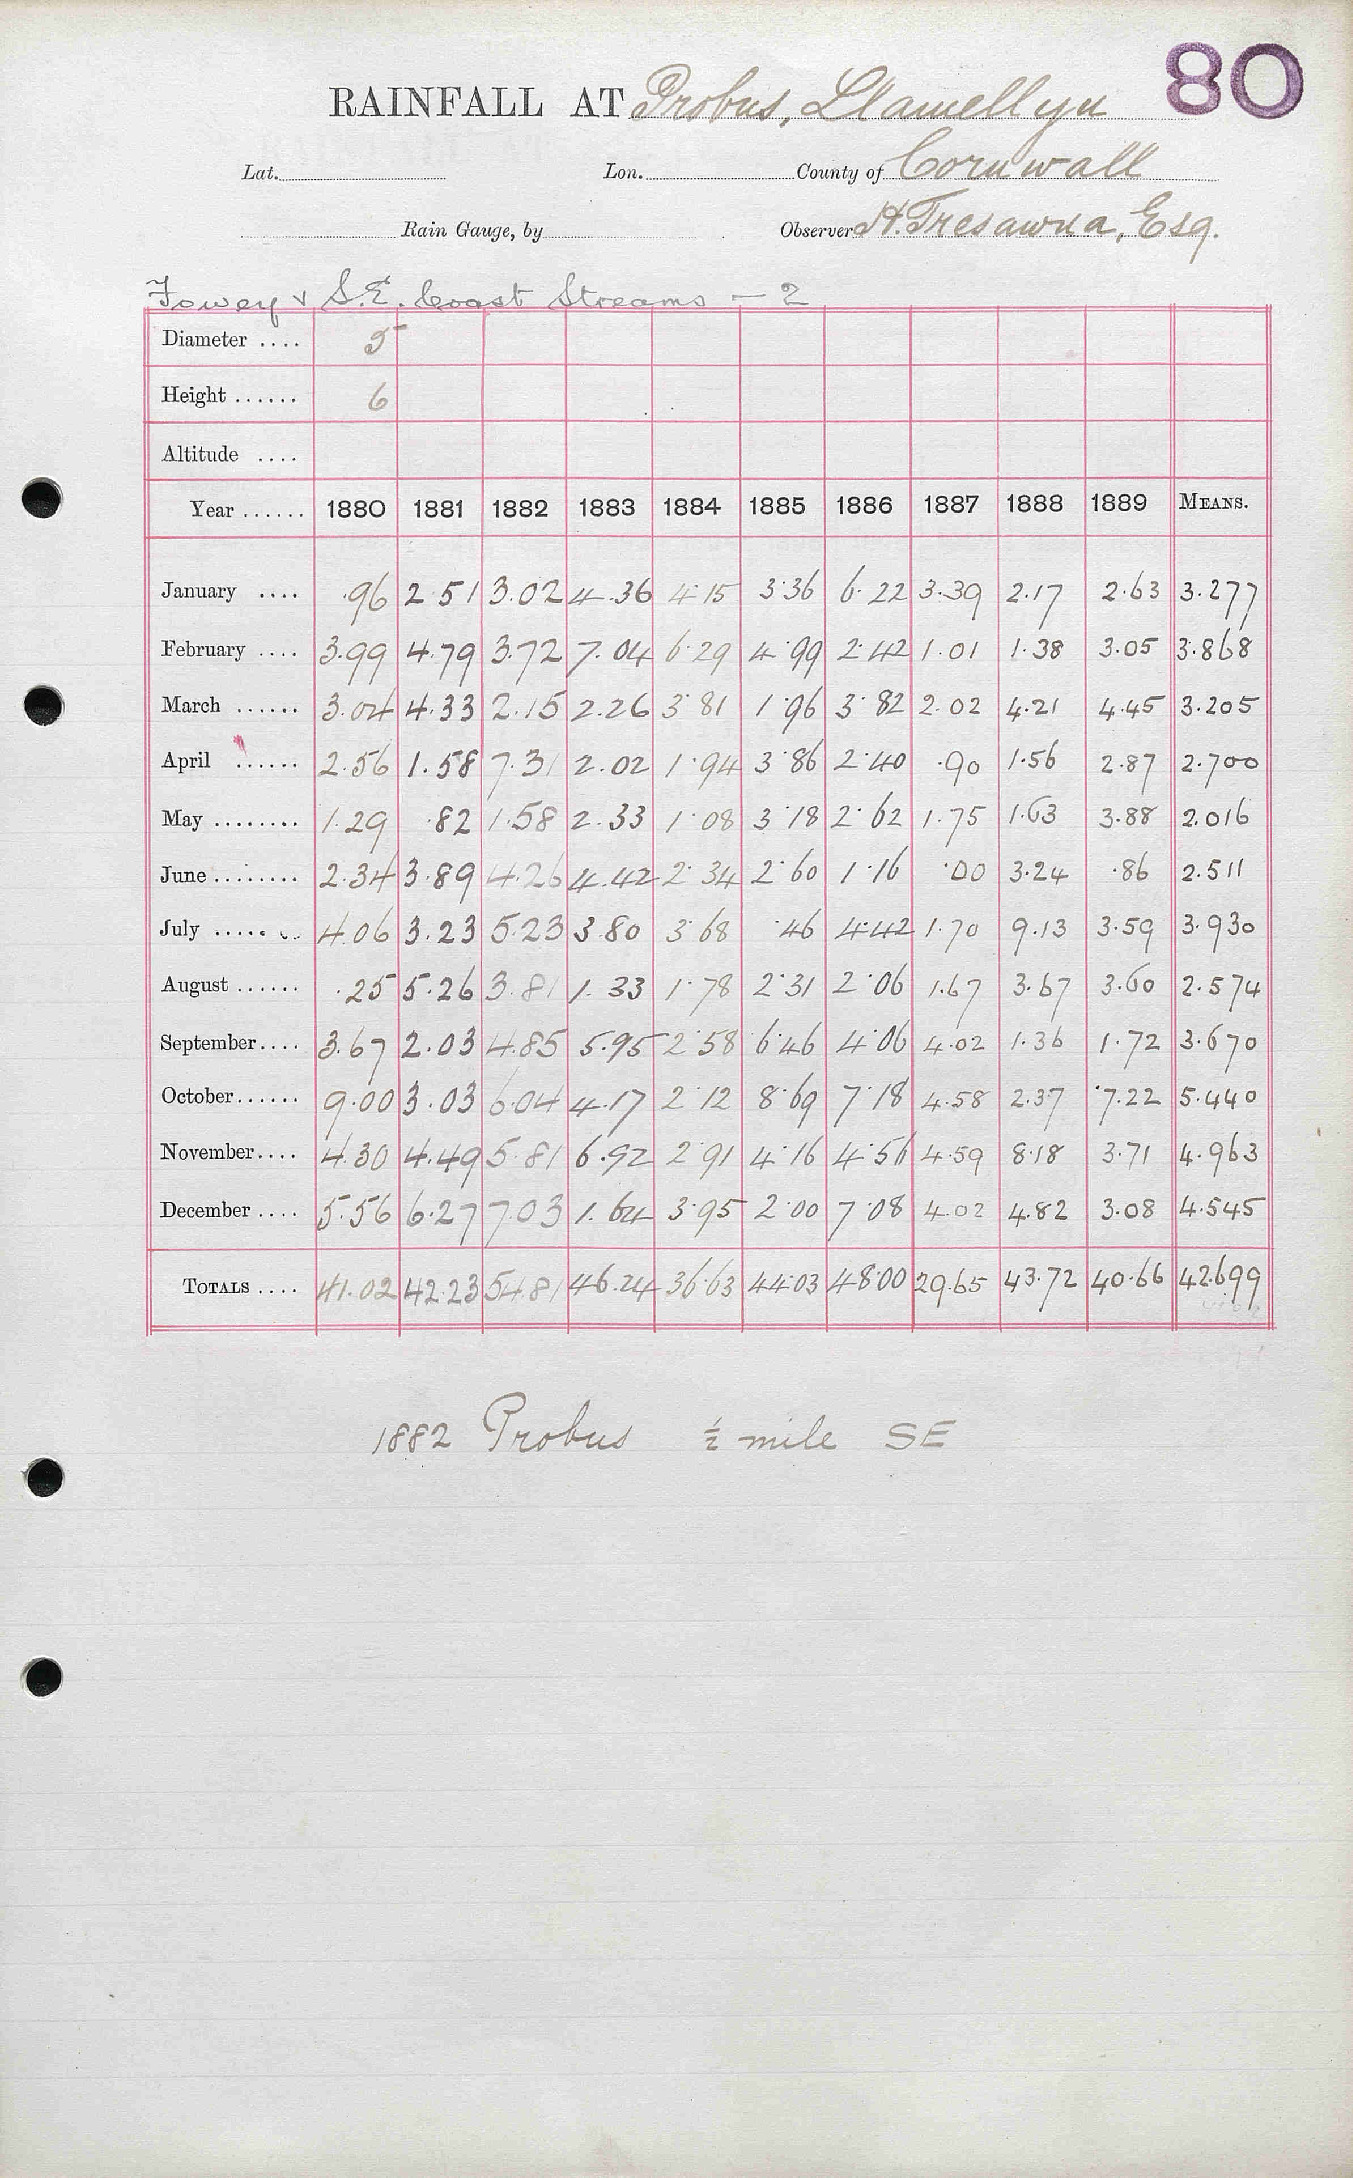 80
RAINFALL AT Probus, Llamellyn
Lat. Lon. County of Cornwall
Rain Gauge, by Observer H. Tresawna, Esq.
Fowey & S.E. Coast Streams - 2
Diameter .... 5
Height ...... 6
Altitude ....
Year ...... 1880 1881 1882 1883 1884 1885 1886 1887 1888 1889 MEANS.
January .... .96 2.51 3.02 4.36 4.15 3.36 6.22 3.39 2.17 2.63 3.277
February .... 3.99 4.79 3.72 7.04 6.29 4.99 2.42 1.01 1.38 3.05 3.868
March ...... 3.04 4.33 2.15 2.26 3.81 1.96 3.82 2.02 4.21 4.45 3.205
April ...... 2.56 1.58 7.31 2.02 1.94 3.86 2.40 .90 1.56 2.87 2.700
May ........ 1.29 .82 1.58 2.33 1.08 3.18 2.62 1.75 1.63 3.88 2.016
June ........ 2.34 3.89 4.26 4.42 2.34 2.60 1.16 .00 3.24 .86 2.511
July ........ 4.06 3.23 5.23 3.80 3.68 .46 4.42 1.70 9.13 3.59 3.930
August ...... .25 5.26 3.81 1.33 1.78 2.31 2.06 1.67 3.67 3.60 2.574
September.... 3.67 2.03 4.85 5.95 2.58 6.46 4.06 4.02 1.36 1.72 3.670
October...... 9.00 3.03 6.04 4.17 2.12 8.69 7.18 4.58 2.37 7.22 5.440
November.... 4.30 4.49 5.81 6.92 2.91 4.16 4.56 4.59 8.18 3.71 4.963
December .... 5.56 6.27 7.03 1.64 3.95 2.00 7.08 4.02 4.82 3.08 4.545
TOTALS .... 41.02 42.23 54.81 46.24 36.63 44.03 48.00 29.65 43.72 40.66 42.699
1882 Probus ½ mile SE